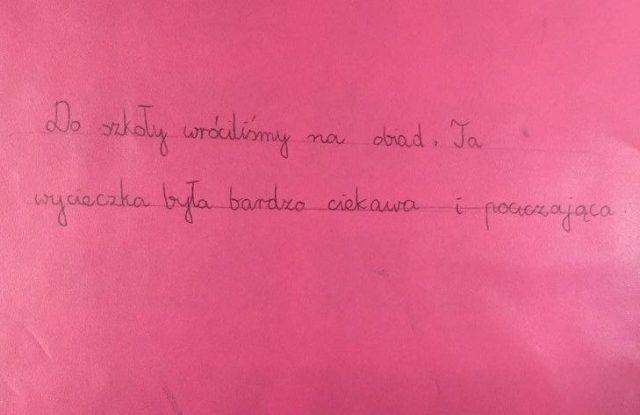 Do szkoły wróciliśmy na obiad. Ta
wycieczka była bardzo ciekawa i pouczająca